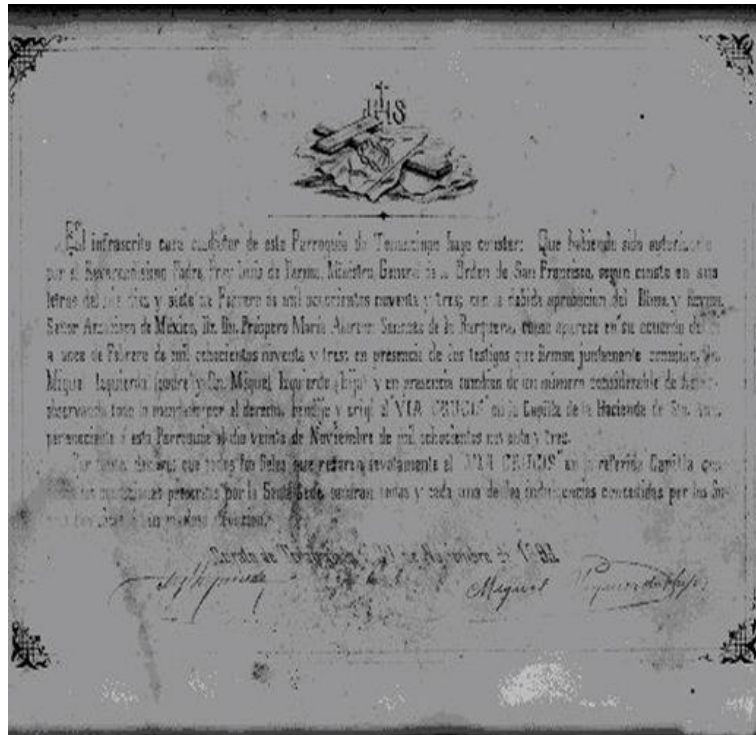 IHS
El infrascrito cura coadjutor de esta Parroquia de Temascingo hago constar: Que habiendo sido autorizado
por el Reverendisimo Padre, Fray Luis de Parma, Ministro General de la Orden de San Francisco, segun consta en sus
letras del dia diez y siete de Febrero de mil ochocientos noventa y tres; con la debida aprobacion del Illmo. y Rvmo.
Señor Arzobispo de México, Dr. Dn. Próspero María Alarcon Sanchez de la Barquera, como aparece en su acuerdo de
a once de Febrero de mil ochocientos noventa y tres; en presencia de los testigos que firman juntamente conmigo,
Miguel Izquierdo (padre) y Dn. Miguel Izquierdo (hijo) y en presencia tambien de un número considerable de
observando todo lo mandado por el derecho, bendije y erigí el "VIA CRUCIS" en la Capilla de la Hacienda de Sta. Ana,
perteneciente á esta Parroquia el dia veinte de Noviembre de mil ochocientos noventa y tres.
Por tanto, declaro que todos los fieles que rezaren devotamente el "VIA CRUCIS" en la referida Capilla
por la Santa Sede, ganaran todas y cada una de las indulgencias concedidas por los
Curato de Noviembre de
Miguel Izquierdo hijo